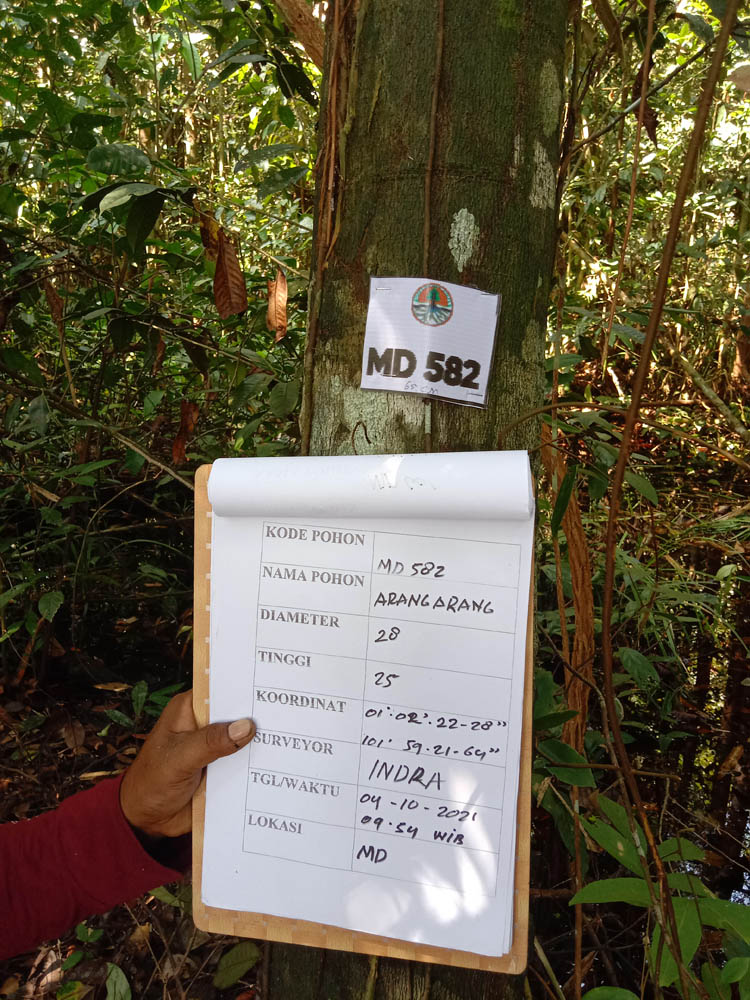 MD 582
KODE POHON MD 582
NAMA POHON ARANGARANG
DIAMETER 28
TINGGI 25
KOORDINAT 01°.02'.22-28"
101° 59-21-64"
SURVEYOR INDRA
TGL/WAKTU 04-10-2021
09.54 WIB
LOKASI MD